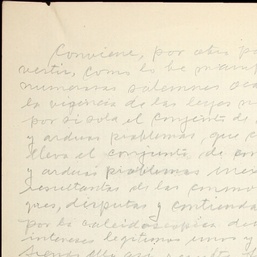 Conviene, por otra pa
vertir, como lo he mani
numerosas solemnes oca
la vigencia de las leyes n
por si sola el conjunto de
y arduos problemas, que c
lleva el conjunto de con
y arduos problemas
resultantes de las conmo
ques, disputas y contienda
por la caleidoscópica de
intereses legítimos unos y